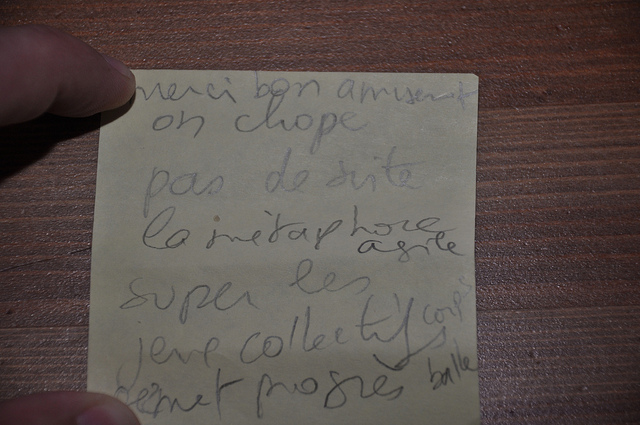 merci bon amusement
on chope
pas de suite
la métaphore
agile
super les
jeux collectifs corps
permet progrès balle